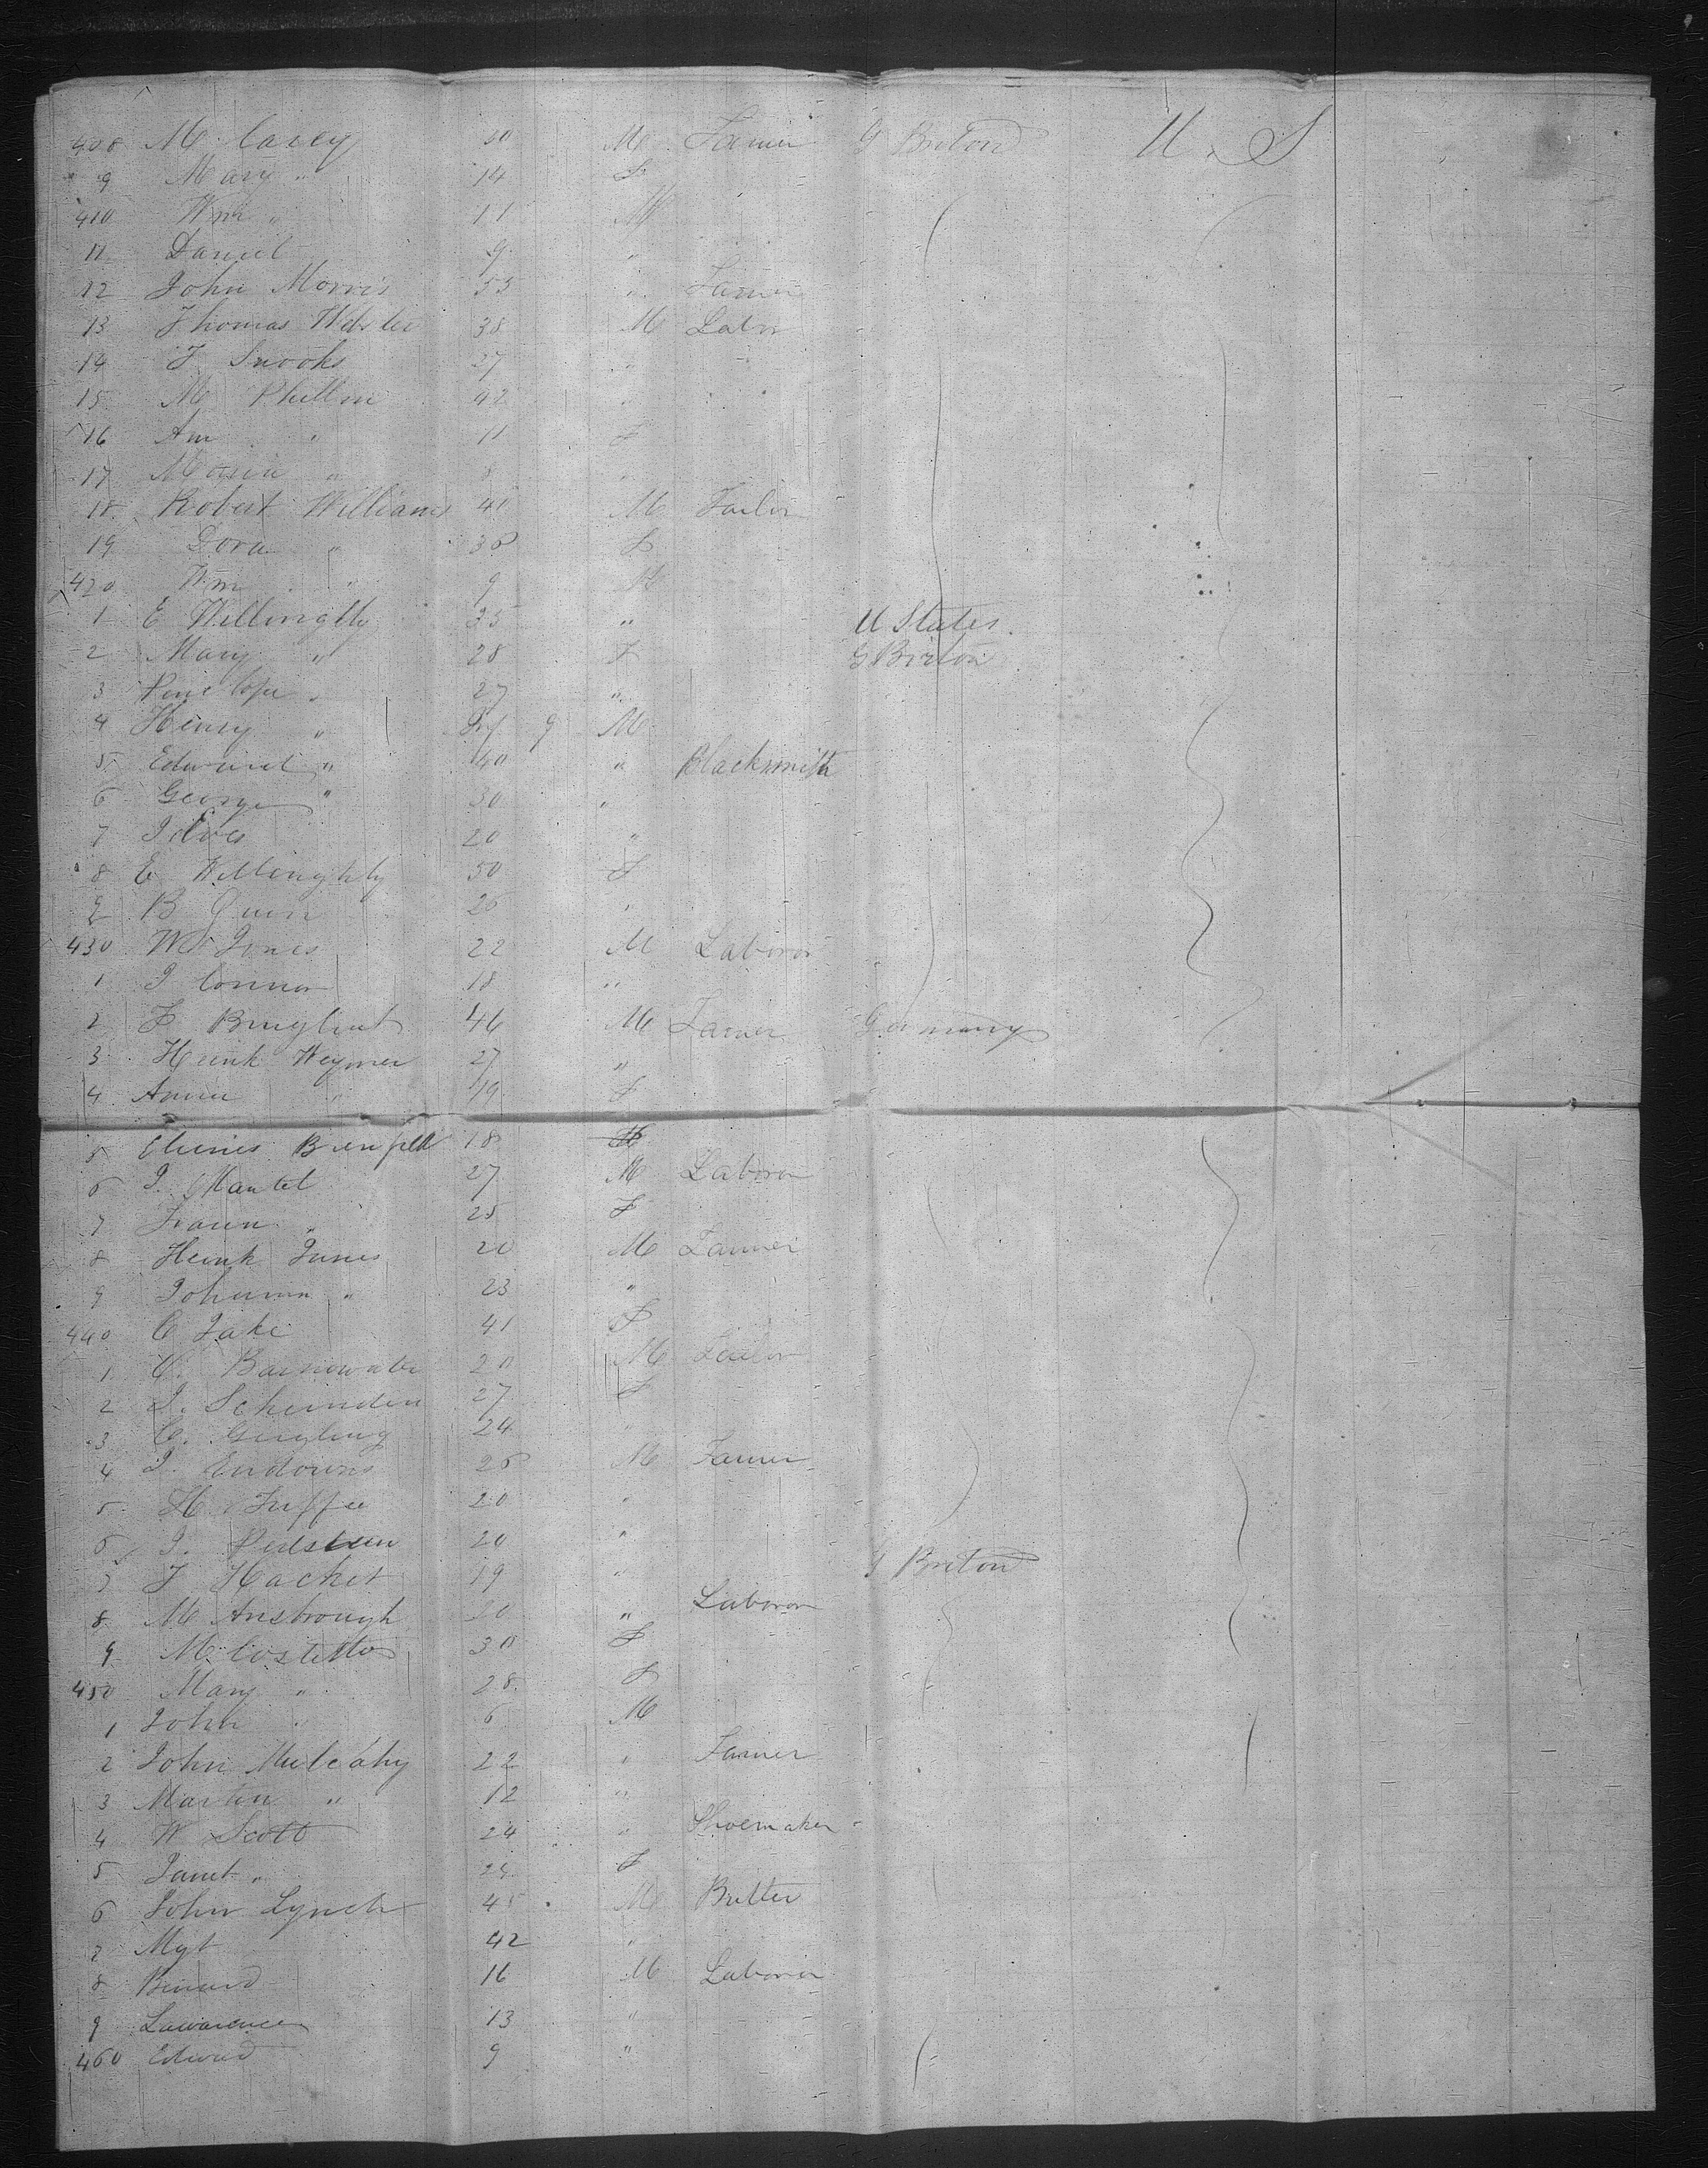 408 M. Casey 40 M Farmer G Briton U. S
9 Mary " 14 F
410 Wm " 11 M
11 Daniel 9 "
12 John Morris 55 " Farmer
13 Thomas Webster 38 M Labor
14 J Snooks 27 "
15 M 42 "
16 Ann " 11 F
17 Maria " 8 "
18 Robert Williams 41 M Tailor
19 Dora " 36 F
420 Wm " 9 M
1 E 35 " U States
2 Mary " 28 F G Briton
3 Penelope " 27 "
4 Henry " Inf 9 M
5 Edward " 40 " Blacksmith
6 George " 30 "
7 20 "
8 E Willinghby 50 F
9 B Quin 26 "
430 Wm Jones 22 M Laboror
1 J Connor 18 "
2 F 46 M Farmer Germany
3 Heink Weymer 27 "
4 Annie " 19 F
5 18
6 J. Mantel 27 M Laboror
7 " 25 F
8 Heink Junes 20 M Farmer
9 Johanna " 23 "
440 C Jake 41 F
1 C. 20 M Tailor
2 J. Scheinden 27 F
3 C. 24 "
4 J. 26 M Farmer
5 H. 20 "
6 J. 20 "
7 J Hacket 19 " G Briton
8 M Ansbrough 20 " Laboror
9 M Costello 30 F
450 Mary " 28 F
1 John " 6 M
2 John Mulcahy 22 " Farmer
3 Martin " 12 "
4 W Scott 24 " Shoemaker
5 Janet " 24 F
6 John Lynch 45 M
7 Mgt 42 "
8 Bernard 16 M Laboror
9 Lawarence 13 "
460 Edward 9 "